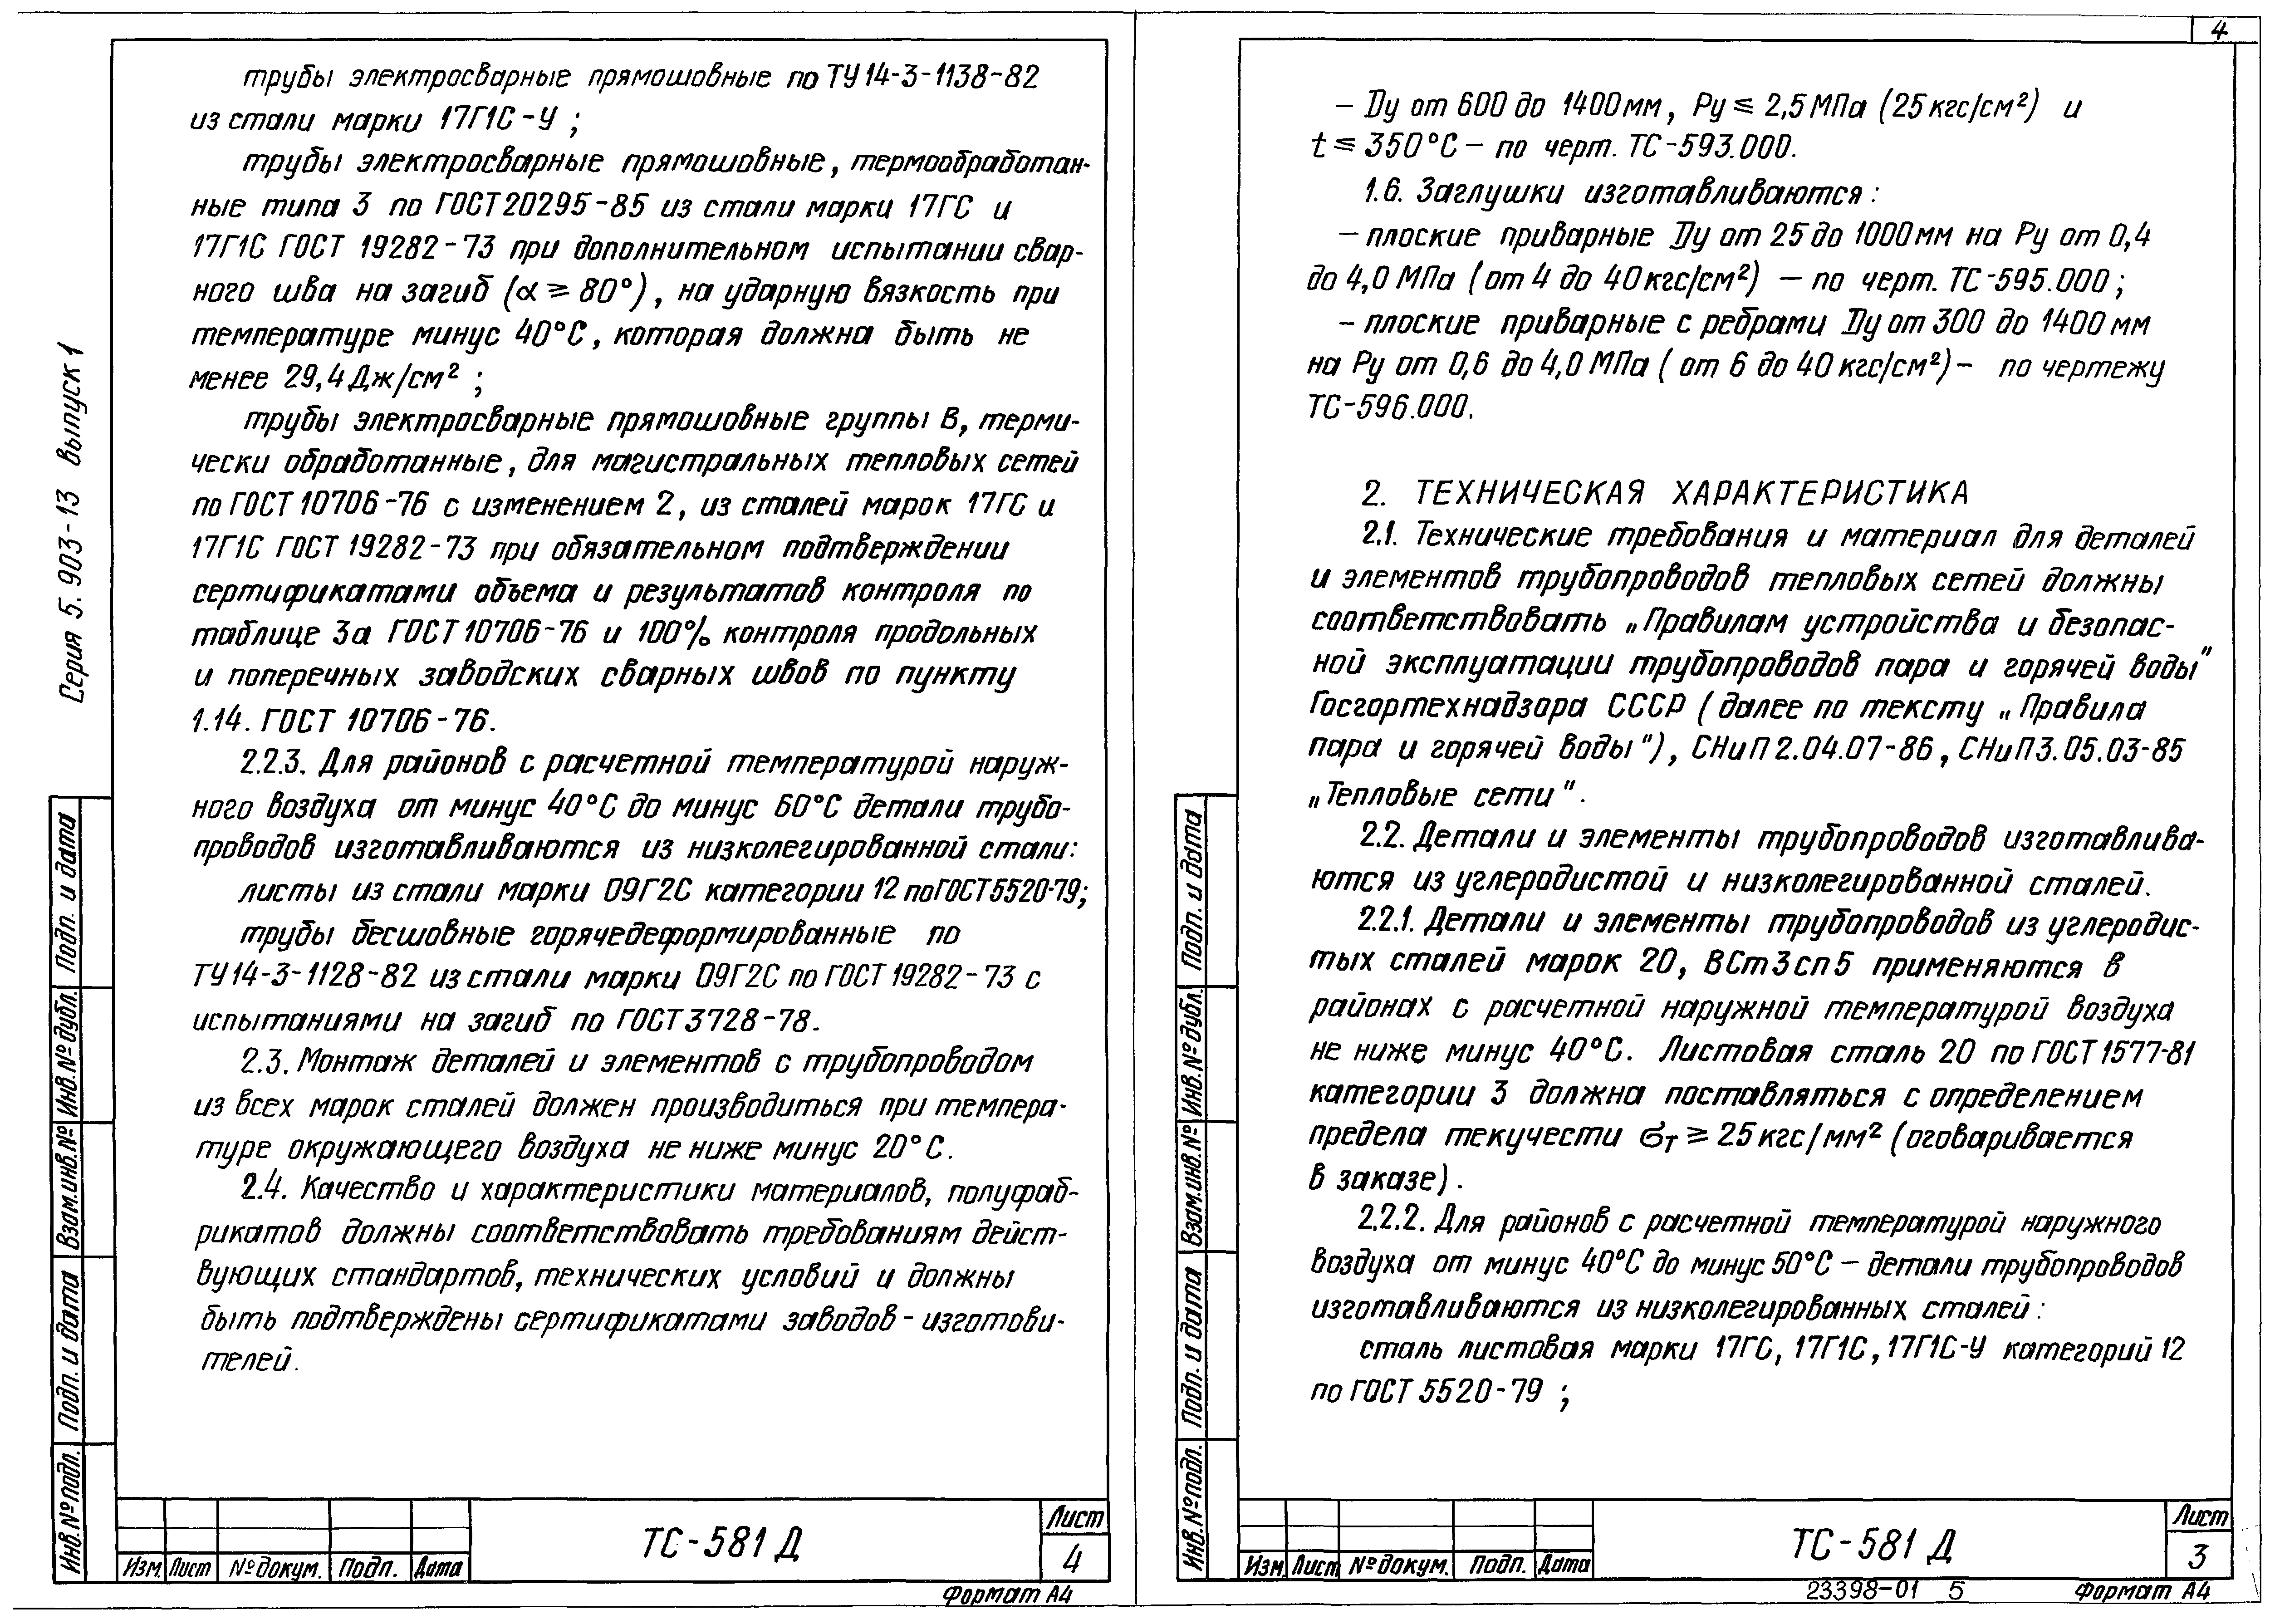 Серия 5.903-13 выпуск 1
трубы электросварные прямошовные по ТУ14-3-1138-82
из стали марки 17Г1С-У ;
трубы электросварные прямошовные, термообработан-
ные типа 3 по ГОСТ20295-85 из стали марки 17ГС и
17Г1С ГОСТ 19282-73 при дополнительном испытании свар-
ного шва на загиб (α ≥ 80°), на ударную вязкость при
температуре минус 40°С, которая должна быть не
менее 29,4 Дж/см² ;
трубы электросварные прямошовные группы В, терми-
чески обработанные, для магистральных тепловых сетей
по ГОСТ 10706-76 с изменением 2, из сталей марок 17ГС и
17Г1С ГОСТ 19282-73 при обязательном подтверждении
сертификатами объема и результатов контроля по
таблице 3а ГОСТ 10706-76 и 100% контроля продольных
и поперечных заводских сварных швов по пункту
1.14. ГОСТ 10706-76.
2.2.3. Для районов с расчетной температурой наруж-
ного воздуха от минус 40°С до минус 60°С детали трубо-
проводов изготавливаются из низколегированной стали:
листы из стали марки 09Г2С категории 12 по ГОСТ5520-79;
трубы бесшовные горячедеформированные по
ТУ14-3-1128-82 из стали марки 09Г2С по ГОСТ 19282-73 с
испытаниями на загиб по ГОСТ 3728-78.
2.3. Монтаж деталей и элементов с трубопроводом
из всех марок сталей должен производиться при темпера-
туре окружающего воздуха не ниже минус 20°С.
2.4. Качество и характеристики материалов, полуфаб-
рикатов должны соответствовать требованиям дейст-
вующих стандартов, технических условий и должны
быть подтверждены сертификатами заводов-изготови-
телей.
Подп. и дата
Инв.№дубл.
Взам.инв.№
Подп. и дата
Инв.№подл.
Изм. Лист №докум. Подп. Дата
ТС-581 Д
Лист
4
Формат А4
4
– Dу от 600 до 1400мм, Ру ≤ 2,5 МПа (25 кгс/см²) и
t ≤ 350°С – по черт. ТС-593.000.
1.6. Заглушки изготавливаются :
– плоские приварные Dу от 25 до 1000мм на Ру от 0,4
до 4,0 МПа (от 4 до 40кгс/см²) – по черт. ТС-595.000;
– плоские приварные с ребрами Dу от 300 до 1400 мм
на Ру от 0,6 до 4,0 МПа ( от 6 до 40 кгс/см²) – по чертежу
ТС-596.000.
2. ТЕХНИЧЕСКАЯ ХАРАКТЕРИСТИКА
2.1. Технические требования и материал для деталей
и элементов трубопроводов тепловых сетей должны
соответствовать „Правилам устройства и безопас-
ной эксплуатации трубопроводов пара и горячей воды"
Госгортехнадзора СССР (далее по тексту „Правила
пара и горячей воды"), СНиП 2.04.07-86, СНиП3.05.03-85
„Тепловые сети".
2.2. Детали и элементы трубопроводов изготавлива-
ются из углеродистой и низколегированной сталей.
2.2.1. Детали и элементы трубопроводов из углеродис-
тых сталей марок 20, ВСт3сп5 применяются в
районах с расчетной наружной температурой воздуха
не ниже минус 40°С. Листовая сталь 20 по ГОСТ 1577-81
категории 3 должна поставляться с определением
предела текучести σт ≥ 25 кгс/мм² (оговаривается
в заказе).
2.2.2. Для районов с расчетной температурой наружного
воздуха от минус 40°С до минус 50°С – детали трубопроводов
изготавливаются из низколегированных сталей :
сталь листовая марки 17ГС, 17Г1С, 17Г1С-У категорий 12
по ГОСТ 5520-79 ;
Подп. и дата
Инв.№дубл.
Взам.инв.№
Подп. и дата
Инв.№подл.
Изм. Лист №докум. Подп. Дата
ТС-581 Д
Лист
3
23398-01 5
Формат А4